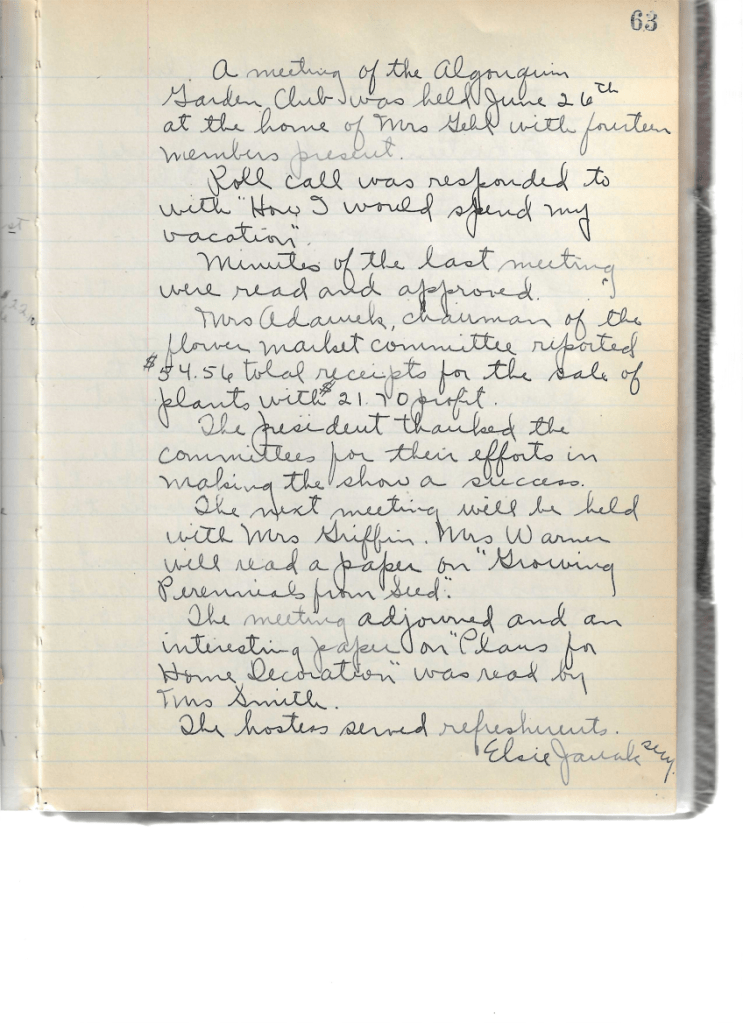 63
A meeting of the Algonquin
Garden Club was held June 26th
at the home of Mrs Gehl with fourteen
members present.
Roll call was responded to
with "How I would spend my
vacation".
Minutes of the last meeting
were read and approved.
Mrs Adamek, chairman of the
flower market committee reported
$54.56 total receipts for the sale of
plants with $21.70 profit.
The president thanked the
committees for their efforts in
making the show a success.
The next meeting will be held
with Mrs Griffin. Mrs Warner
will read a paper on "Growing
Perennials from Seed".
The meeting adjourned and an
interesting paper on "Plans for
Home Decoration" was read by
Mrs Smith.
The hostess served refreshments.
Elsie Janak secy.